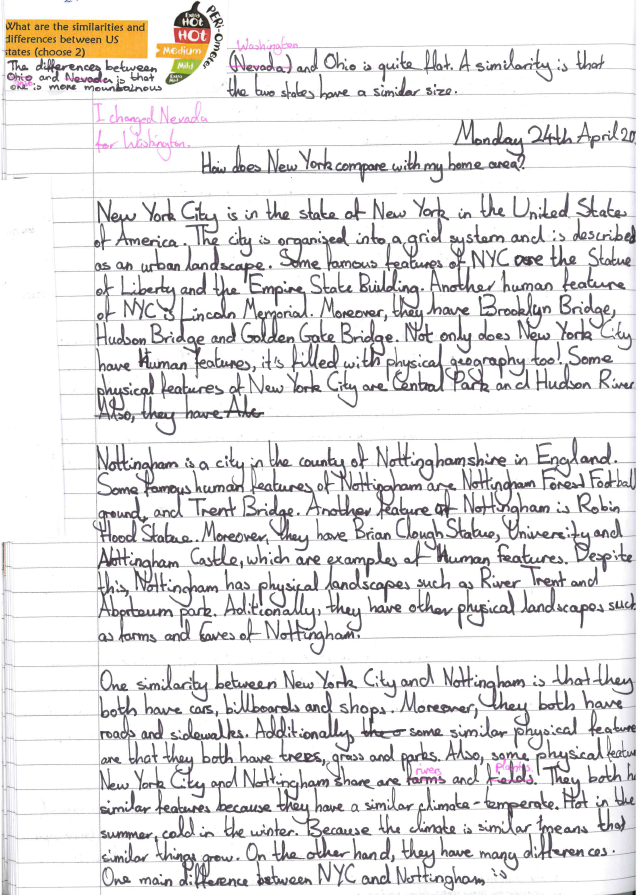 What are the similarities and
differences between US
states (choose 2)
The differences between
Ohio and Nevada is that
one is more mountainous
Extra HOT
HOT
Medium
Mild
Extra Mild
PERi-ometer
Washington
(Nevada) and Ohio is quite flat. A similarity is that
the two states have a similar size.
I changed Nevada
for Washington.
Monday 24th April 20
How does New York compare with my home area?
New York City is in the state of New York in the United States
of America. The city is organised into a grid system and is described
as an urban landscape. Some famous features of NYC are the Statue
of Liberty and the Empire State Building. Another human feature
of NYC is Lincoln Memorial. Moreover, they have Brooklyn Bridge,
Hudson Bridge and Golden Gate Bridge. Not only does New York City
have Human features, it's filled with physical geography too! Some
physical features of New York City are Central Park and Hudson River
Also, they have Alc
Nottingham is a city in the county of Nottinghamshire in England.
Some famous human features of Nottingham are Nottingham Forest Football
ground, and Trent Bridge. Another feature of Nottingham is Robin
Hood Statue. Moreover, they have Brian Clough Statue, University and
Nottingham Castle, which are examples of Human features. Despite
this, Nottingham has physical landscapes such as River Trent and
park. Aditionally, they have other physical landscapes such
as farms and Caves of Nottingham.
One similarity between New York City and Nottingham is that they
both have cars, billboards and shops. Moreover, they both have
roads and sidewalks. Additionally, the some similar physical feature
are that they both have trees, grass and parks. Also, some physical featu
rivers plants
New York City and Nottingham share are farms and fields. They both h
similar features because they have a similar climate - temperate. Hot in the
summer, cold in the winter. Because the climate is similar means that
similar things grow. On the other hand, they have many differences.
One main difference between NYC and Nottingham is